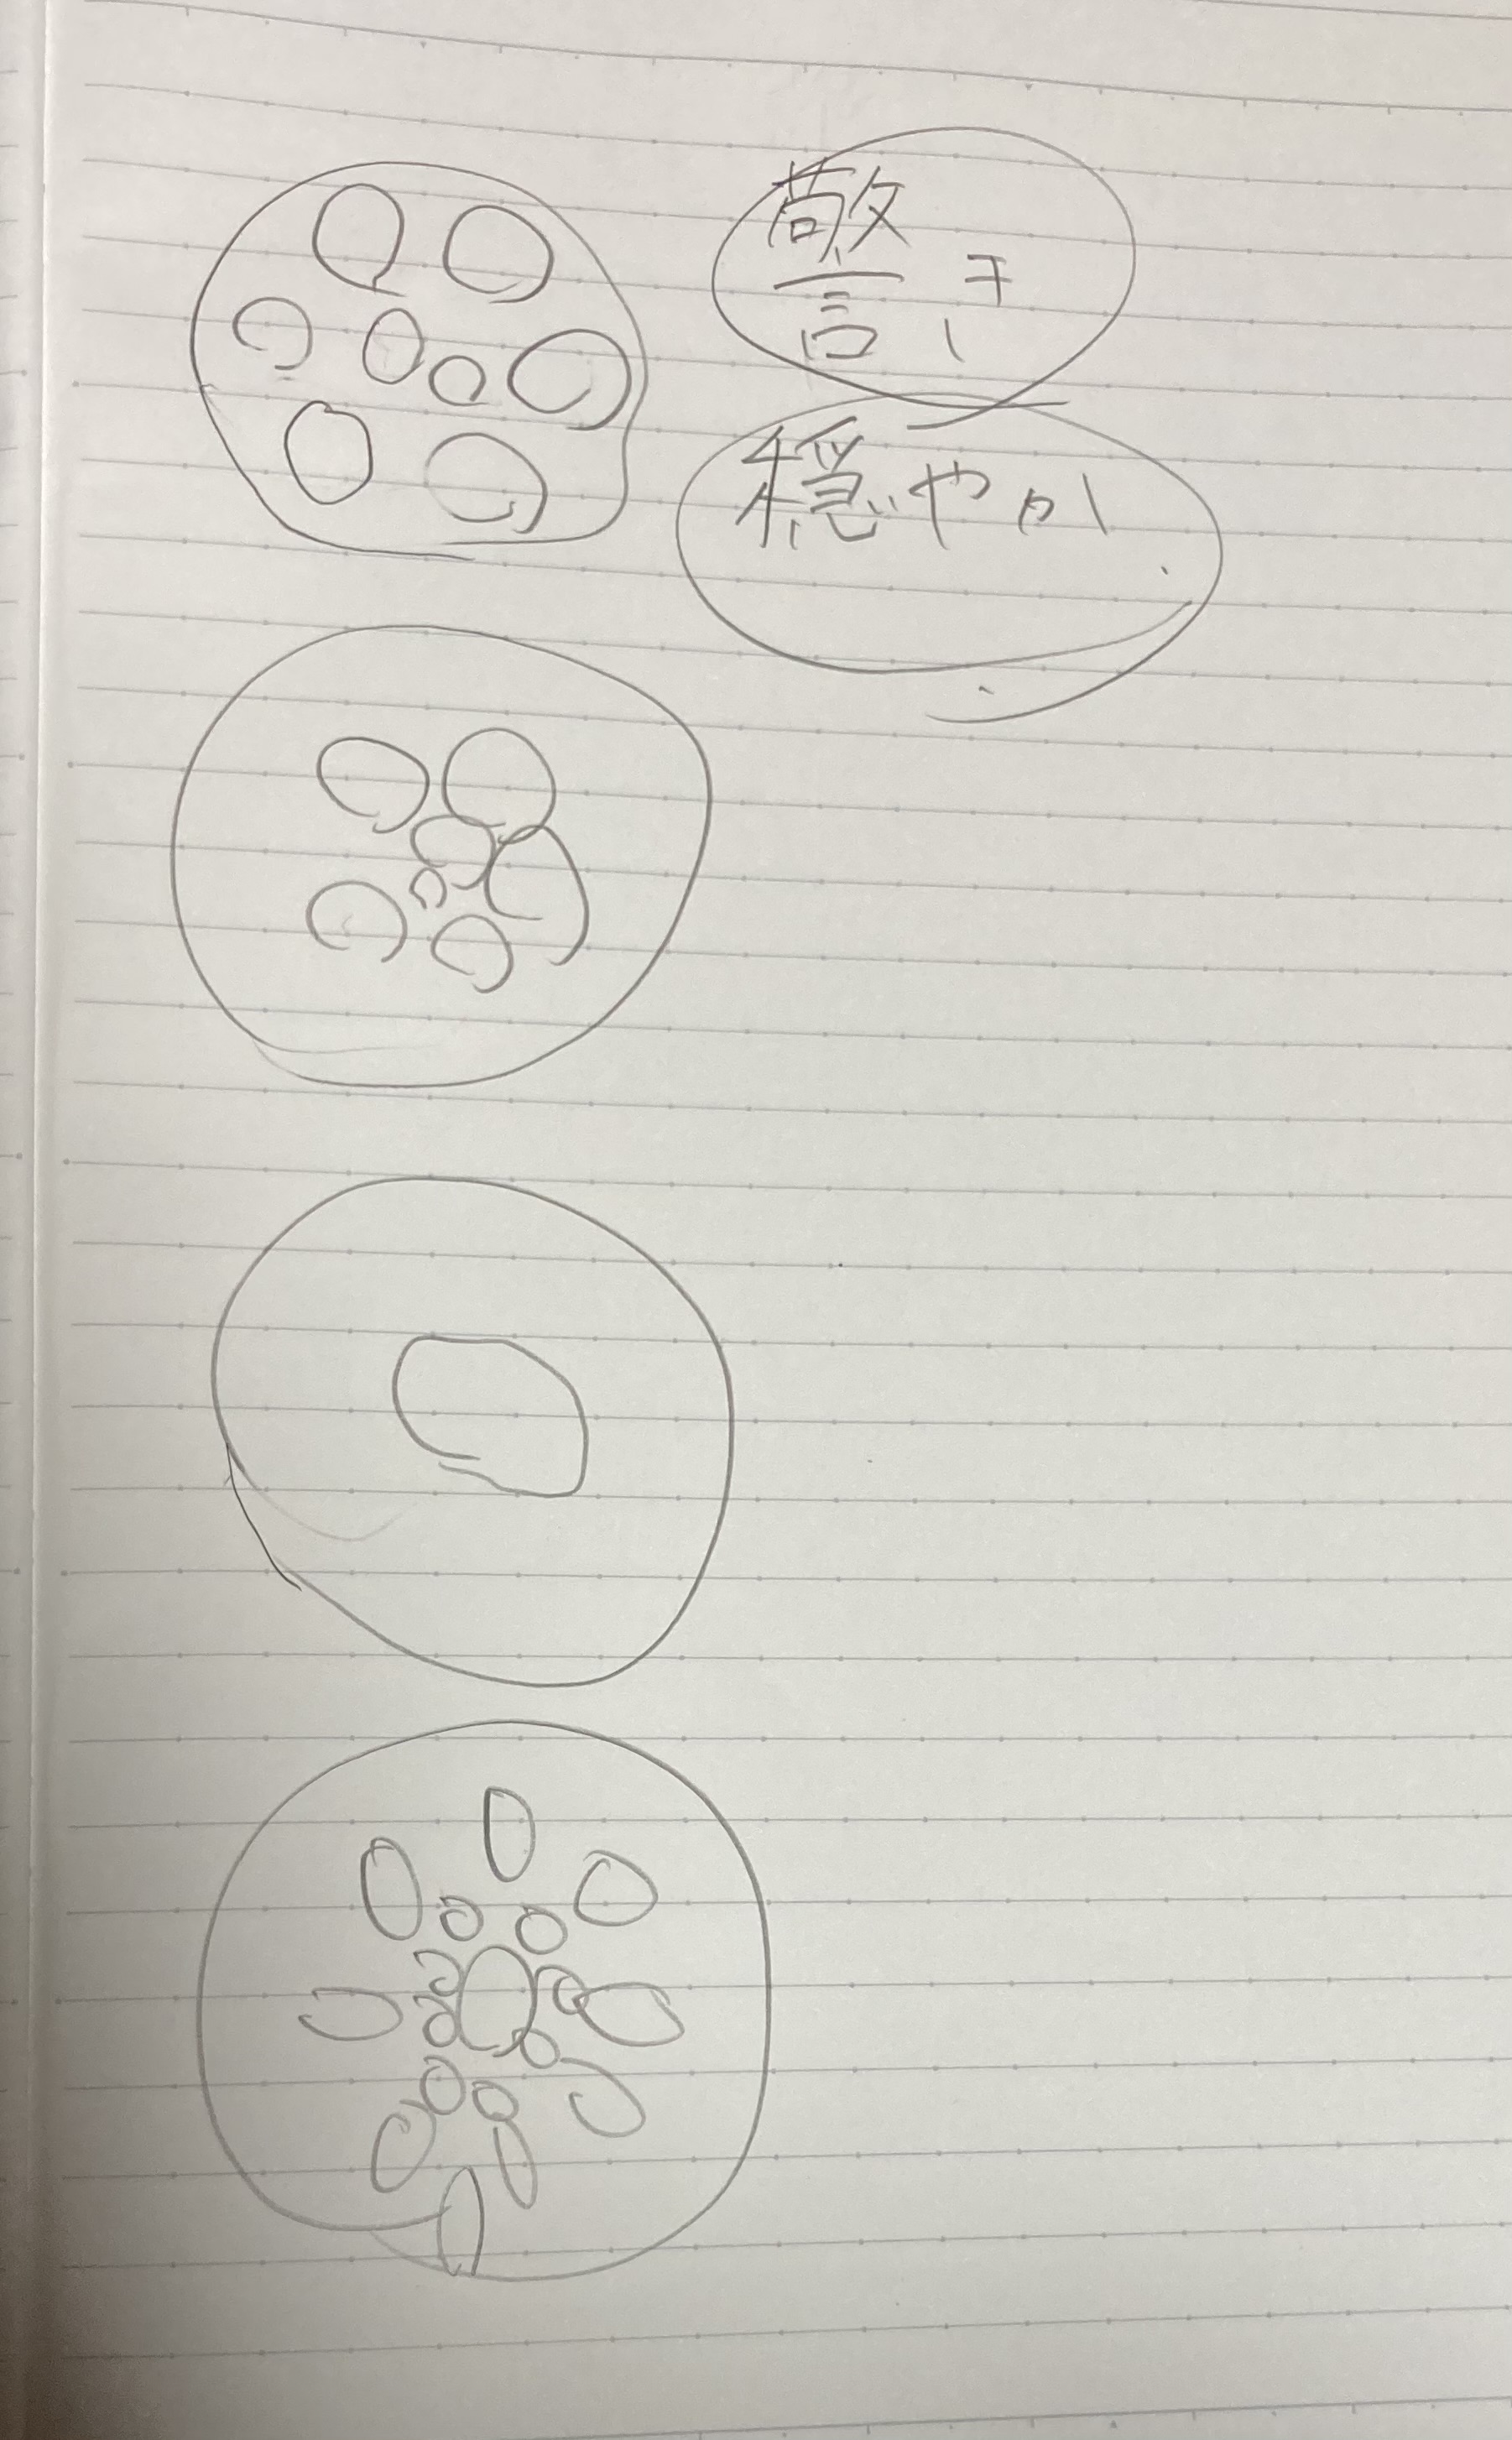 警
穏やか